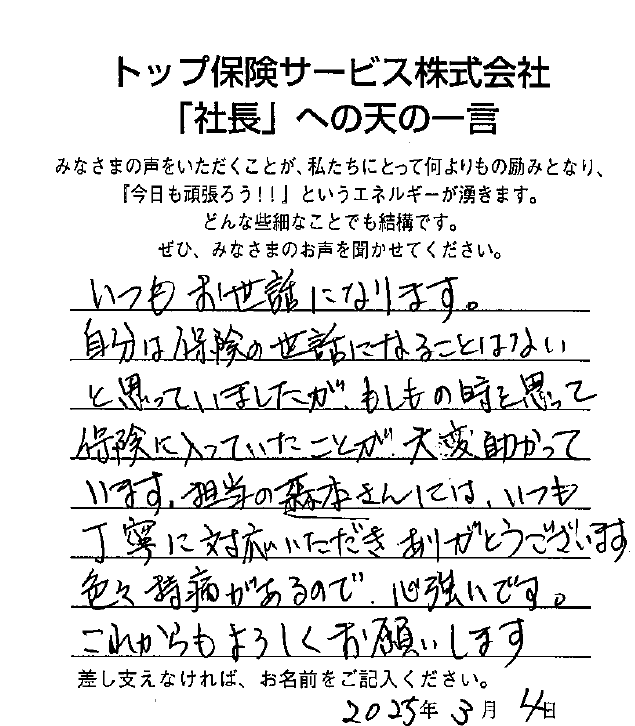 トップ保険サービス株式会社
「社長」への天の一言
みなさまの声をいただくことが、私たちにとって何よりもの励みとなり、
『今日も頑張ろう!!』というエネルギーが湧きます。
どんな些細なことでも結構です。
ぜひ、みなさまのお声を聞かせてください。
いつもお世話になります。
自分は保険の世話になることはない
と思っていましたが、もしもの時を思って
保険に入っていたことが、大変助かって
います。担当の森本さんには、いつも
丁寧に対応いただきありがとうございます
色々持病があるので、心強いです。
これからもよろしくお願いします
差し支えなければ、お名前をご記入ください。
2025年3月4日